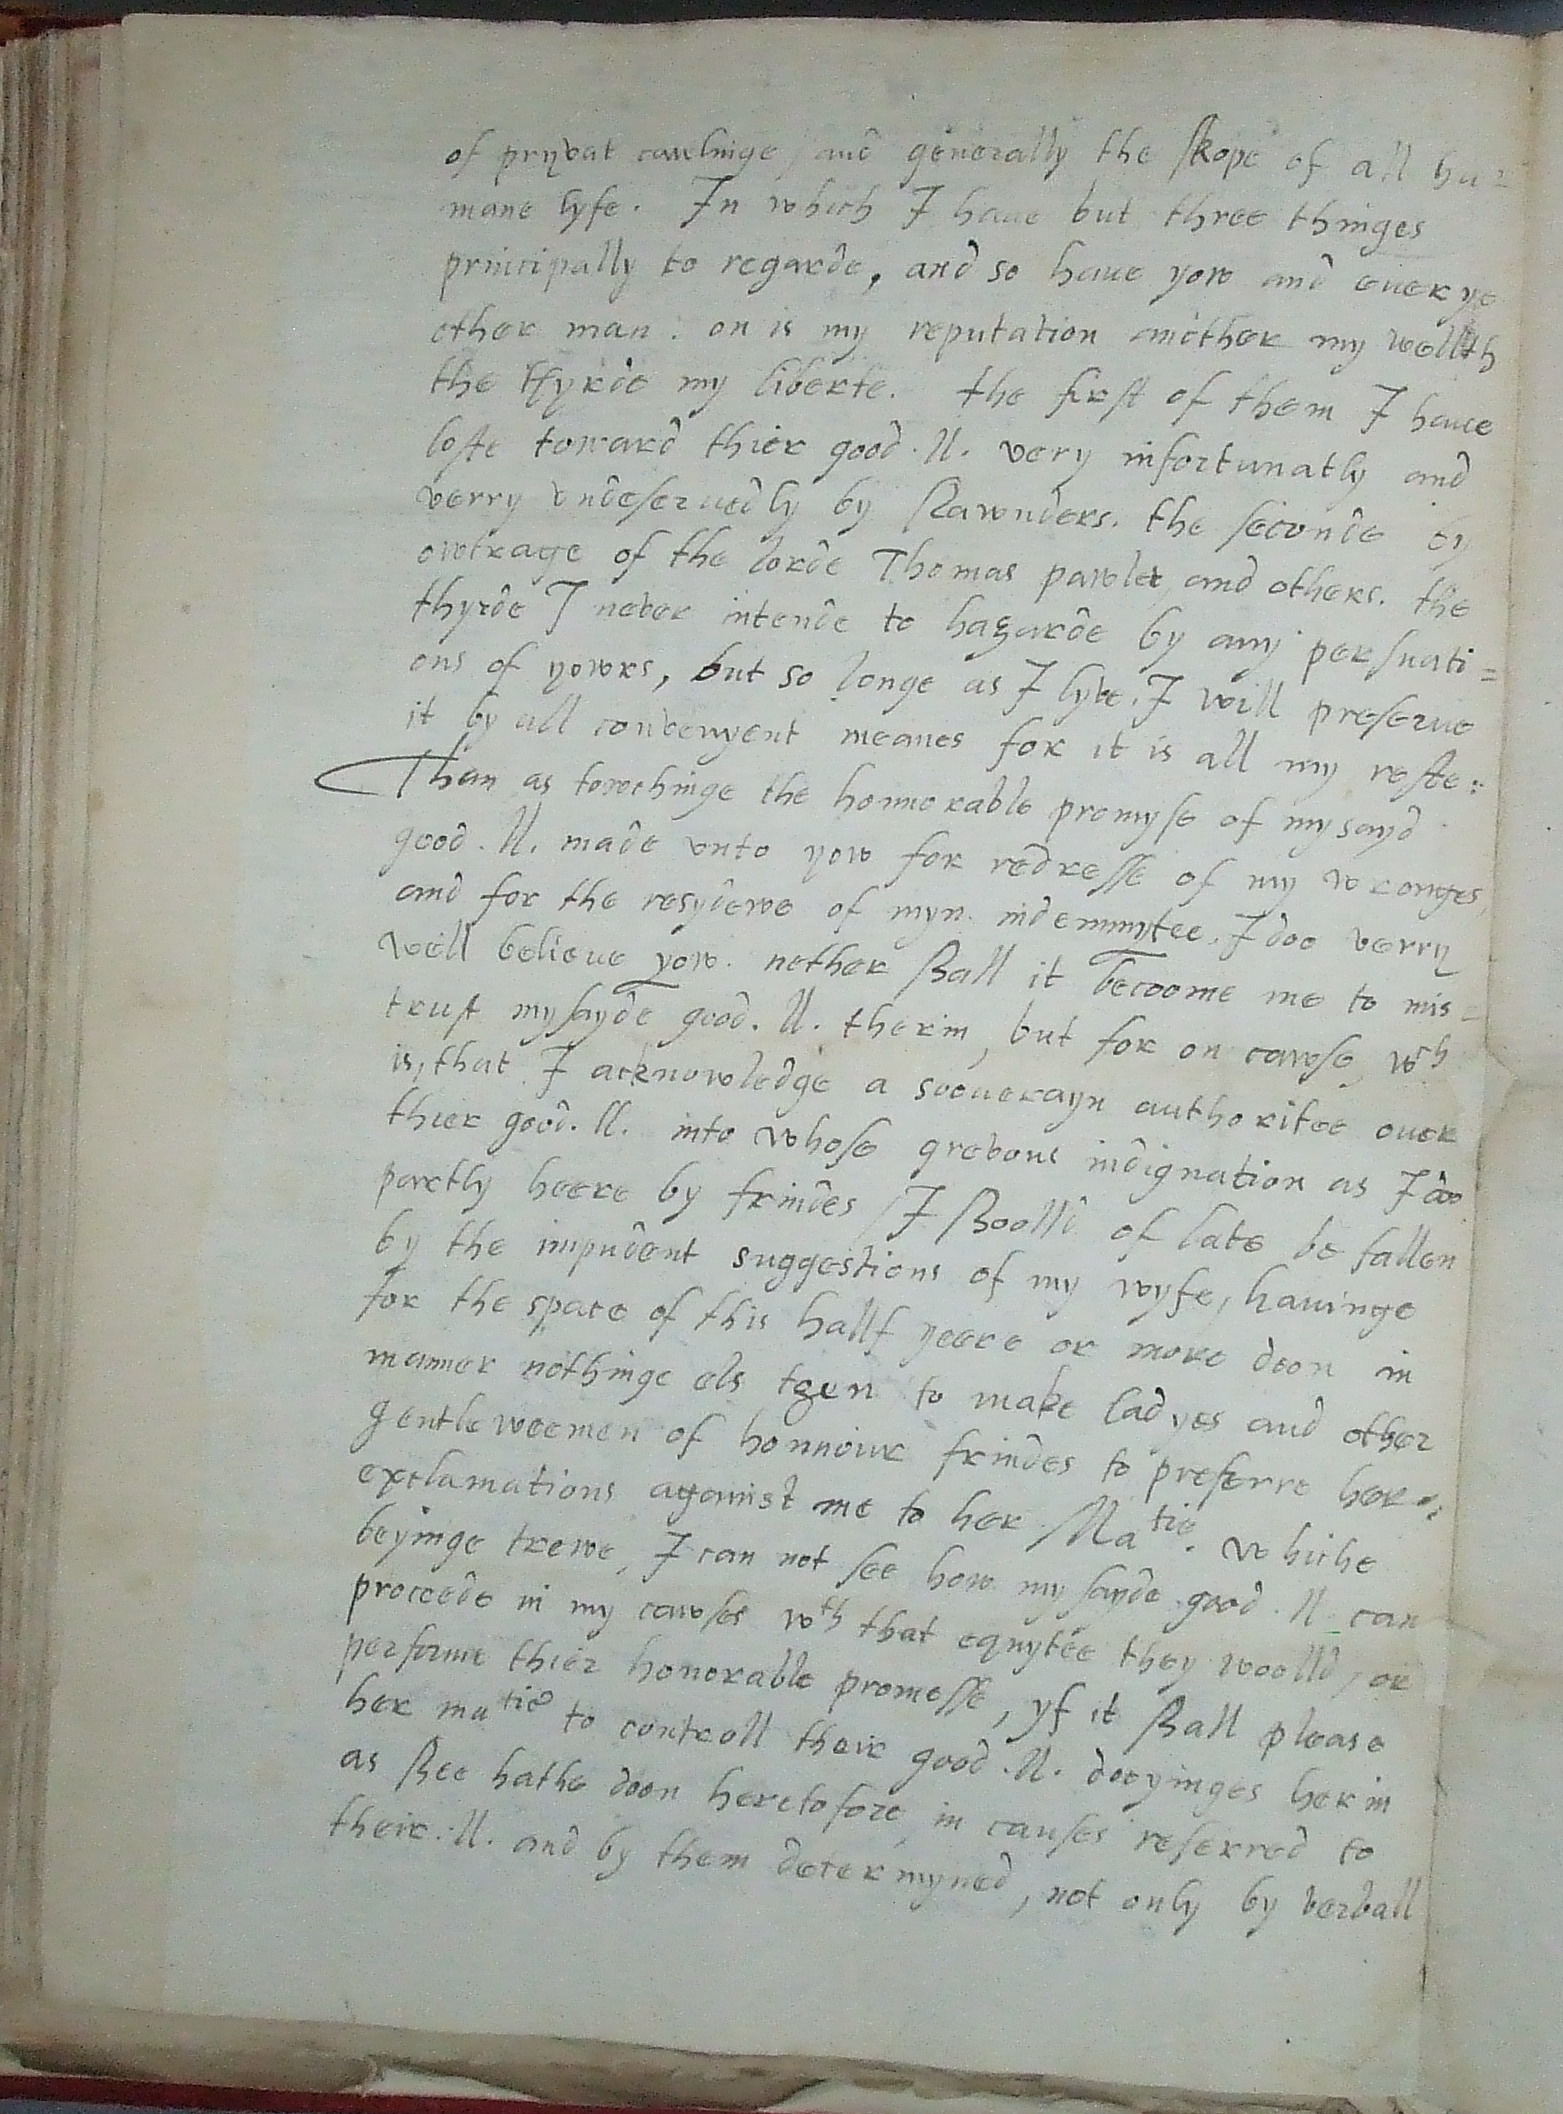 of pryvat cawlinge, and generally the skope of all hu=
mane lyfe. In which I haue but three thinges
principally to regarde, and so haue yow and euerye
other man. on is my reputation another my wellth
the thyrde my liberte. the first of them I haue
loste toward thier good. ll. very infortunatly and
verry vndeseruedly by slawnders. the seconde by
owtrage of the lorde Thomas pawlet, and others. the
thyrde I never intende to hazarde by any persuati=
ons of yowrs, but so longe as I lyve, I will preserue
it by all convenyent meanes for it is all my reste:
Then as towchinge the honnorable promyse of my sayd
good. ll. made vnto yow for redresse of my wronges,
and for the resydewe of myn indemnytee, I doo verry
well believe yow. nether shall it becoome me to mis=
trust my sayde good. ll. therin, but for on cawse, wch
is, that I acknowledge a sooverayn authoritee over
thier good. ll. into whose grevous indignation as I doo
partly heere by frindes, I shoolld of late be fallen
by the impudent suggestions of my wyfe, hauinge
for the space of this hallf yeere or more doon in
manner nothinge els then to make ladyes and other
gentleweemen of honnour frindes to preferre her
exclamations against me to her Matie. whiche
beyinge trewe, I can not see how my sayde good. ll can
proceede in my cawses wth that equytee they woolld, or
performe thier honorable promesse, yf it shall please
her matie to controll their good. ll. dooyinges herin
as shee hathe doon heretofore, in causes referred to
their. ll. and by them determyned, not only by verball